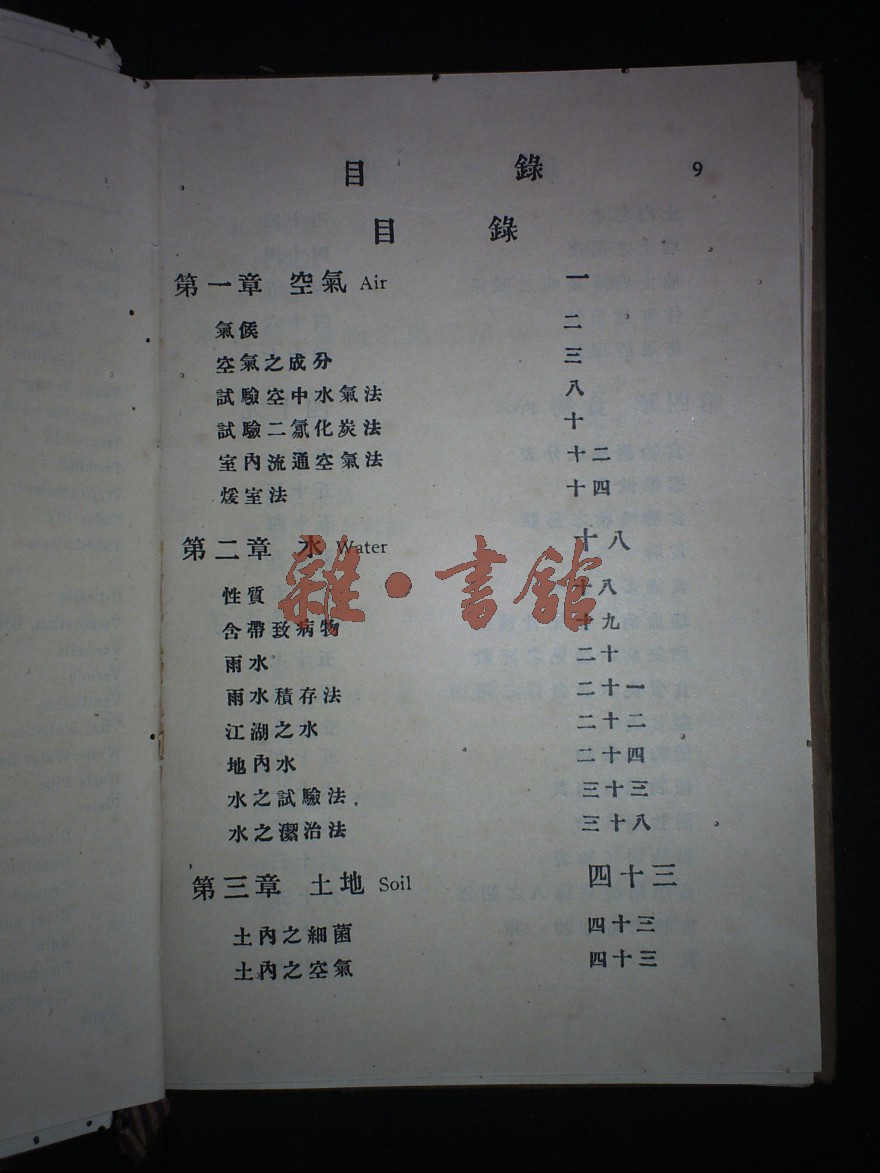 目 錄 9
目 錄
第一章 空氣 Air 一
氣候 二
空氣之成分 三
試驗空中水氣法 八
試驗二氯化炭法 十
室內流通空氣法 十二
煖室法 十四
第二章 水 Water 十八
性質 十八
含帶致病物 十九
雨水 二十
雨水積存法 二十一
江湖之水 二十二
地內水 二十四
水之試驗法 三十三
水之潔治法 三十八
第三章 土地 Soil 四十三
土內之細菌 四十三
土內之空氣 四十三
雜·書館